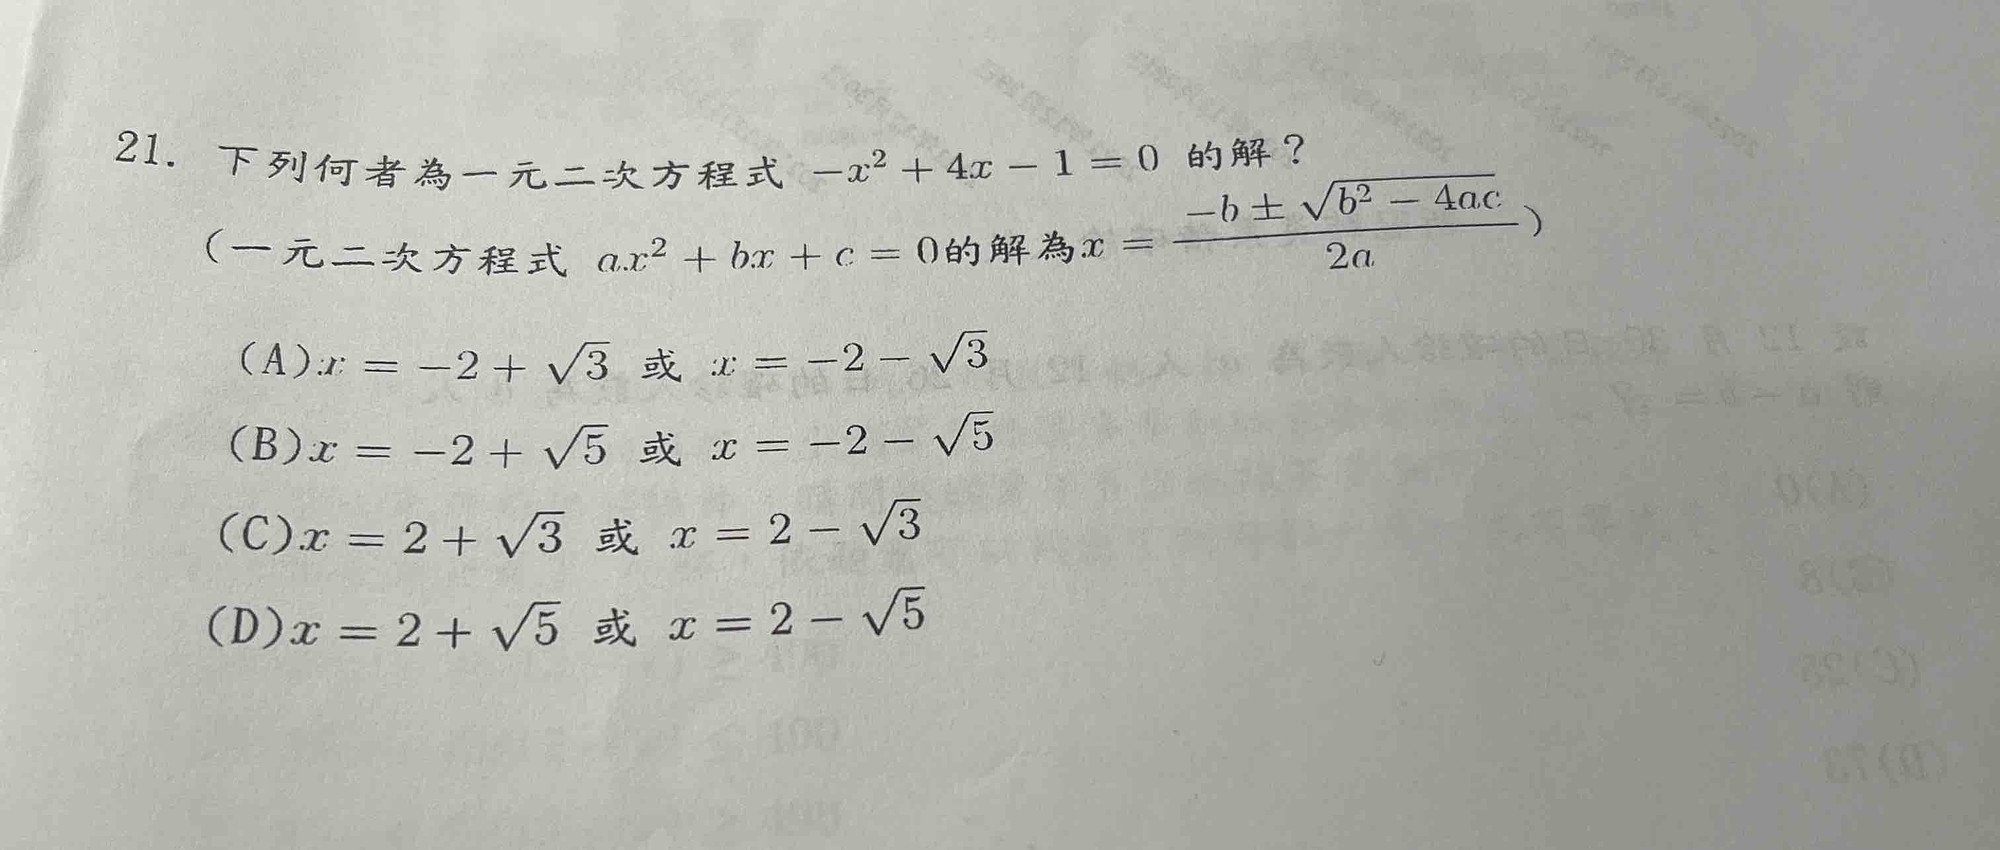 21. 下列何者為一元二次方程式 −x² + 4x − 1 = 0 的解？
(一元二次方程式 ax² + bx + c = 0的解為x = \frac{-b ± \sqrt{b² − 4ac}}{2a})
(A)x = −2 + √3 或 x = −2 − √3
(B)x = −2 + √5 或 x = −2 − √5
(C)x = 2 + √3 或 x = 2 − √3
(D)x = 2 + √5 或 x = 2 − √5